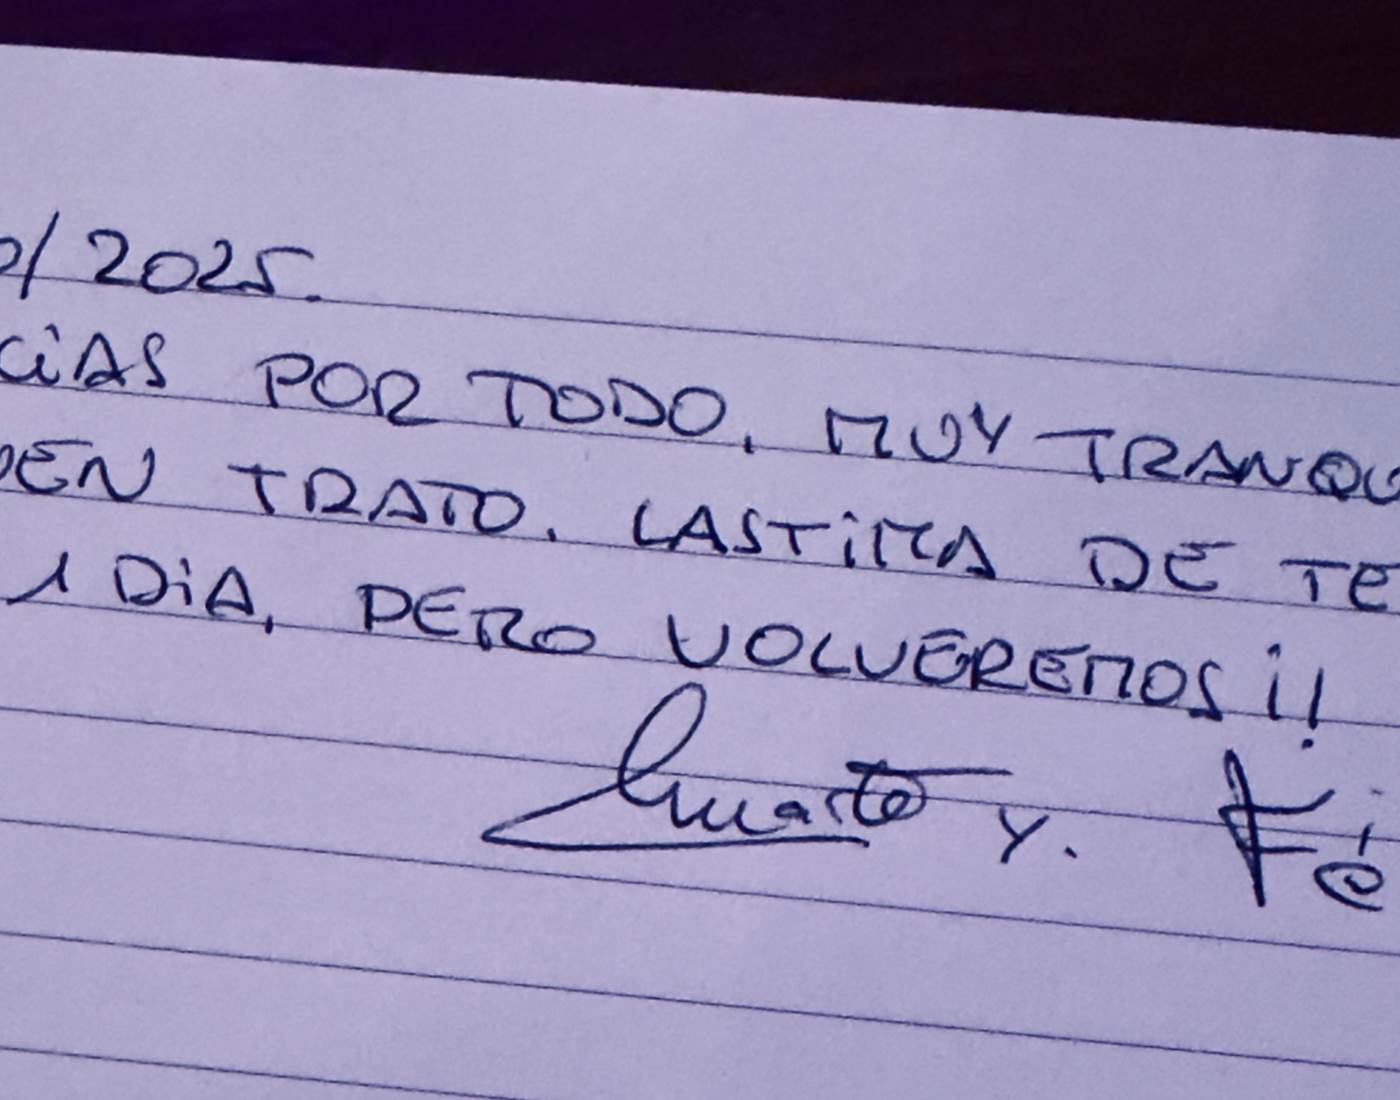 0/2025.
CIAS POR TODO. MUY TRANQU
EN TRATO. LASTIMA DE TE
1 DIA, PERO VOLVEREMOS ¡!
y. Fé